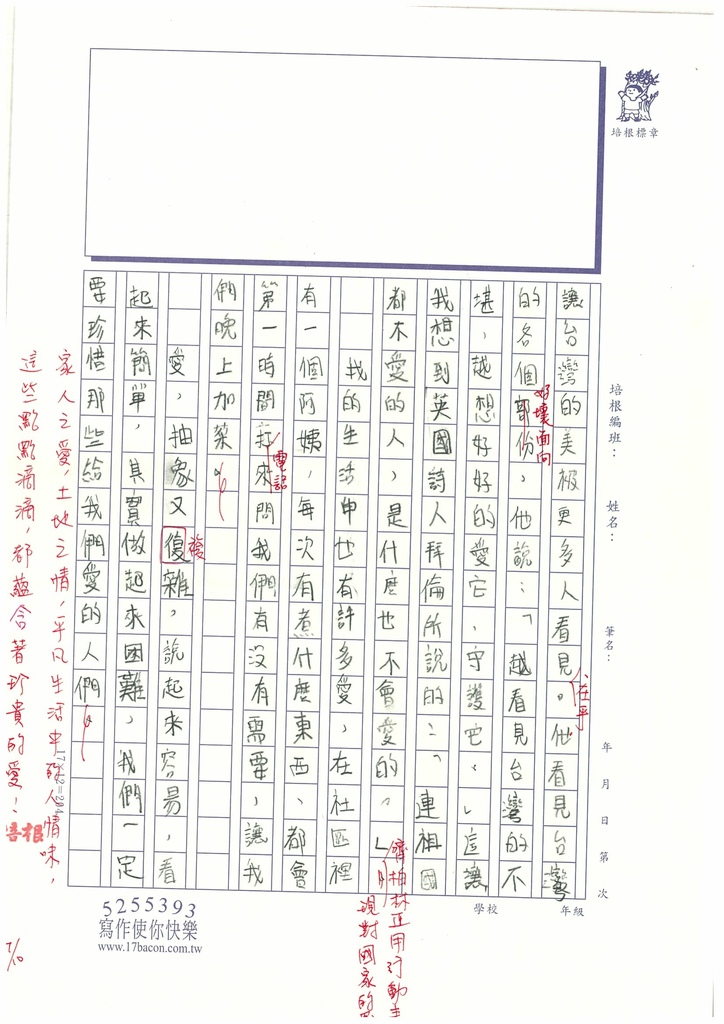 培根標章
培根編班：
姓名：
筆名：
年 月 日 第 次
學校
年級
讓台灣的美被更多人看見。他看見台灣
、在乎
的各個部份，他說：「越看見台灣的不
好壞面向
堪，越想好好的愛它、守護它。」這讓
我想到英國詩人拜倫所說的：「連祖國
都不愛的人，是什麼也不會愛的。」
齊柏林正用行動
現對國家的
我的生活中也有許多愛，在社區裡
有一個阿姨，每次有煮什麼東西，都會
第一時間打來問我們有沒有需要，讓我
電話
們晚上加菜。
愛，抽象又復雜，說起來容易，看
複
起來簡單，其實做起來困難，我們一定
要珍惜那些給我們愛的人們。
17×12=204
家人之愛，土地之情，平凡生活中的人情味，
這些點點滴滴，都蘊含著珍貴的愛！
培根
7/10
5255393
寫作使你快樂
www.17bacon.com.tw